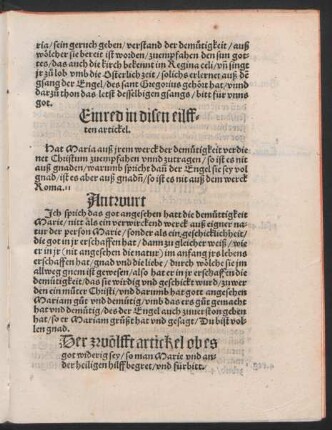 ria/ sein geruch geben/ verstand der demütigkeit/ auß
wölcher sie bereit ist worden/ zuempfahen den sun got-
tes/ das auch die kirch bekennt im Regina celi/ vñ singt
jr zů lob vmb die Osterlich zeit/ solichs erlernet auß dẽ
gsang der Engel/ des sant Gregorius gehört hat/ vnnd
dar zů thon das letst desselbigen gsangs/ bitt für vnns
got.
Einred in disen eilff-
ten artickel.
Hat Maria auß jrem werck der demütigkeit verdie
net Christum zuempfahen vnnd zutragen/ so ist es nit
auß gnaden/ warumb spricht dañ der Engel sie sey vol
gnad/ ist es aber auß gnadñ/ so ist es nit auß dem werck
Roma. 11
Antwurt
Ich sprich das got angesehen hatt die demüttigkeit
Marie/ nitt als ein verwirckend werck auß eigner na-
tur der person Marie/ sonder als ein geschicklichheit/
die got in jr erschaffen hat/ dann zu gleicher weiß/ wie
er in jr (nit angesehen die natur) im anfang jrs lebens
erschaffen hat/ gnad vnd die liebe/ durch wölche sie im
allweg gnem ist gewesen/ also hat er in jr erschaffen die
demütigkeit/ das sie wirdig vnd geschickt wurd/ zuwer
den ein muter Christi/ vnd darumb hat gott angesehen
Mariam gůt vnd demütig/ vmb das ers gůt gemacht
hat vnd demütig/ des der Engel auch zinerston geben
hat/ so er Mariam grüßt hat vnd gesagt/ Du bist vol-
len gnad.
Der zwölfft artickel ob es
got widerig sey/ so man Marie vnd an-
der heiligen hilff begret/ vnd fürbitt.